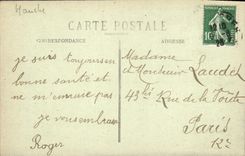 Manche
CARTE POSTALE
CORRESPONDANCE
ADRESSE
10c
je suis toujours en
bonne santé et
ne m'ennuie pas
je vous embrasse
Roger
Madame
et Monsieur Laudet
43 bis Rue de la Voûte
Paris
12e